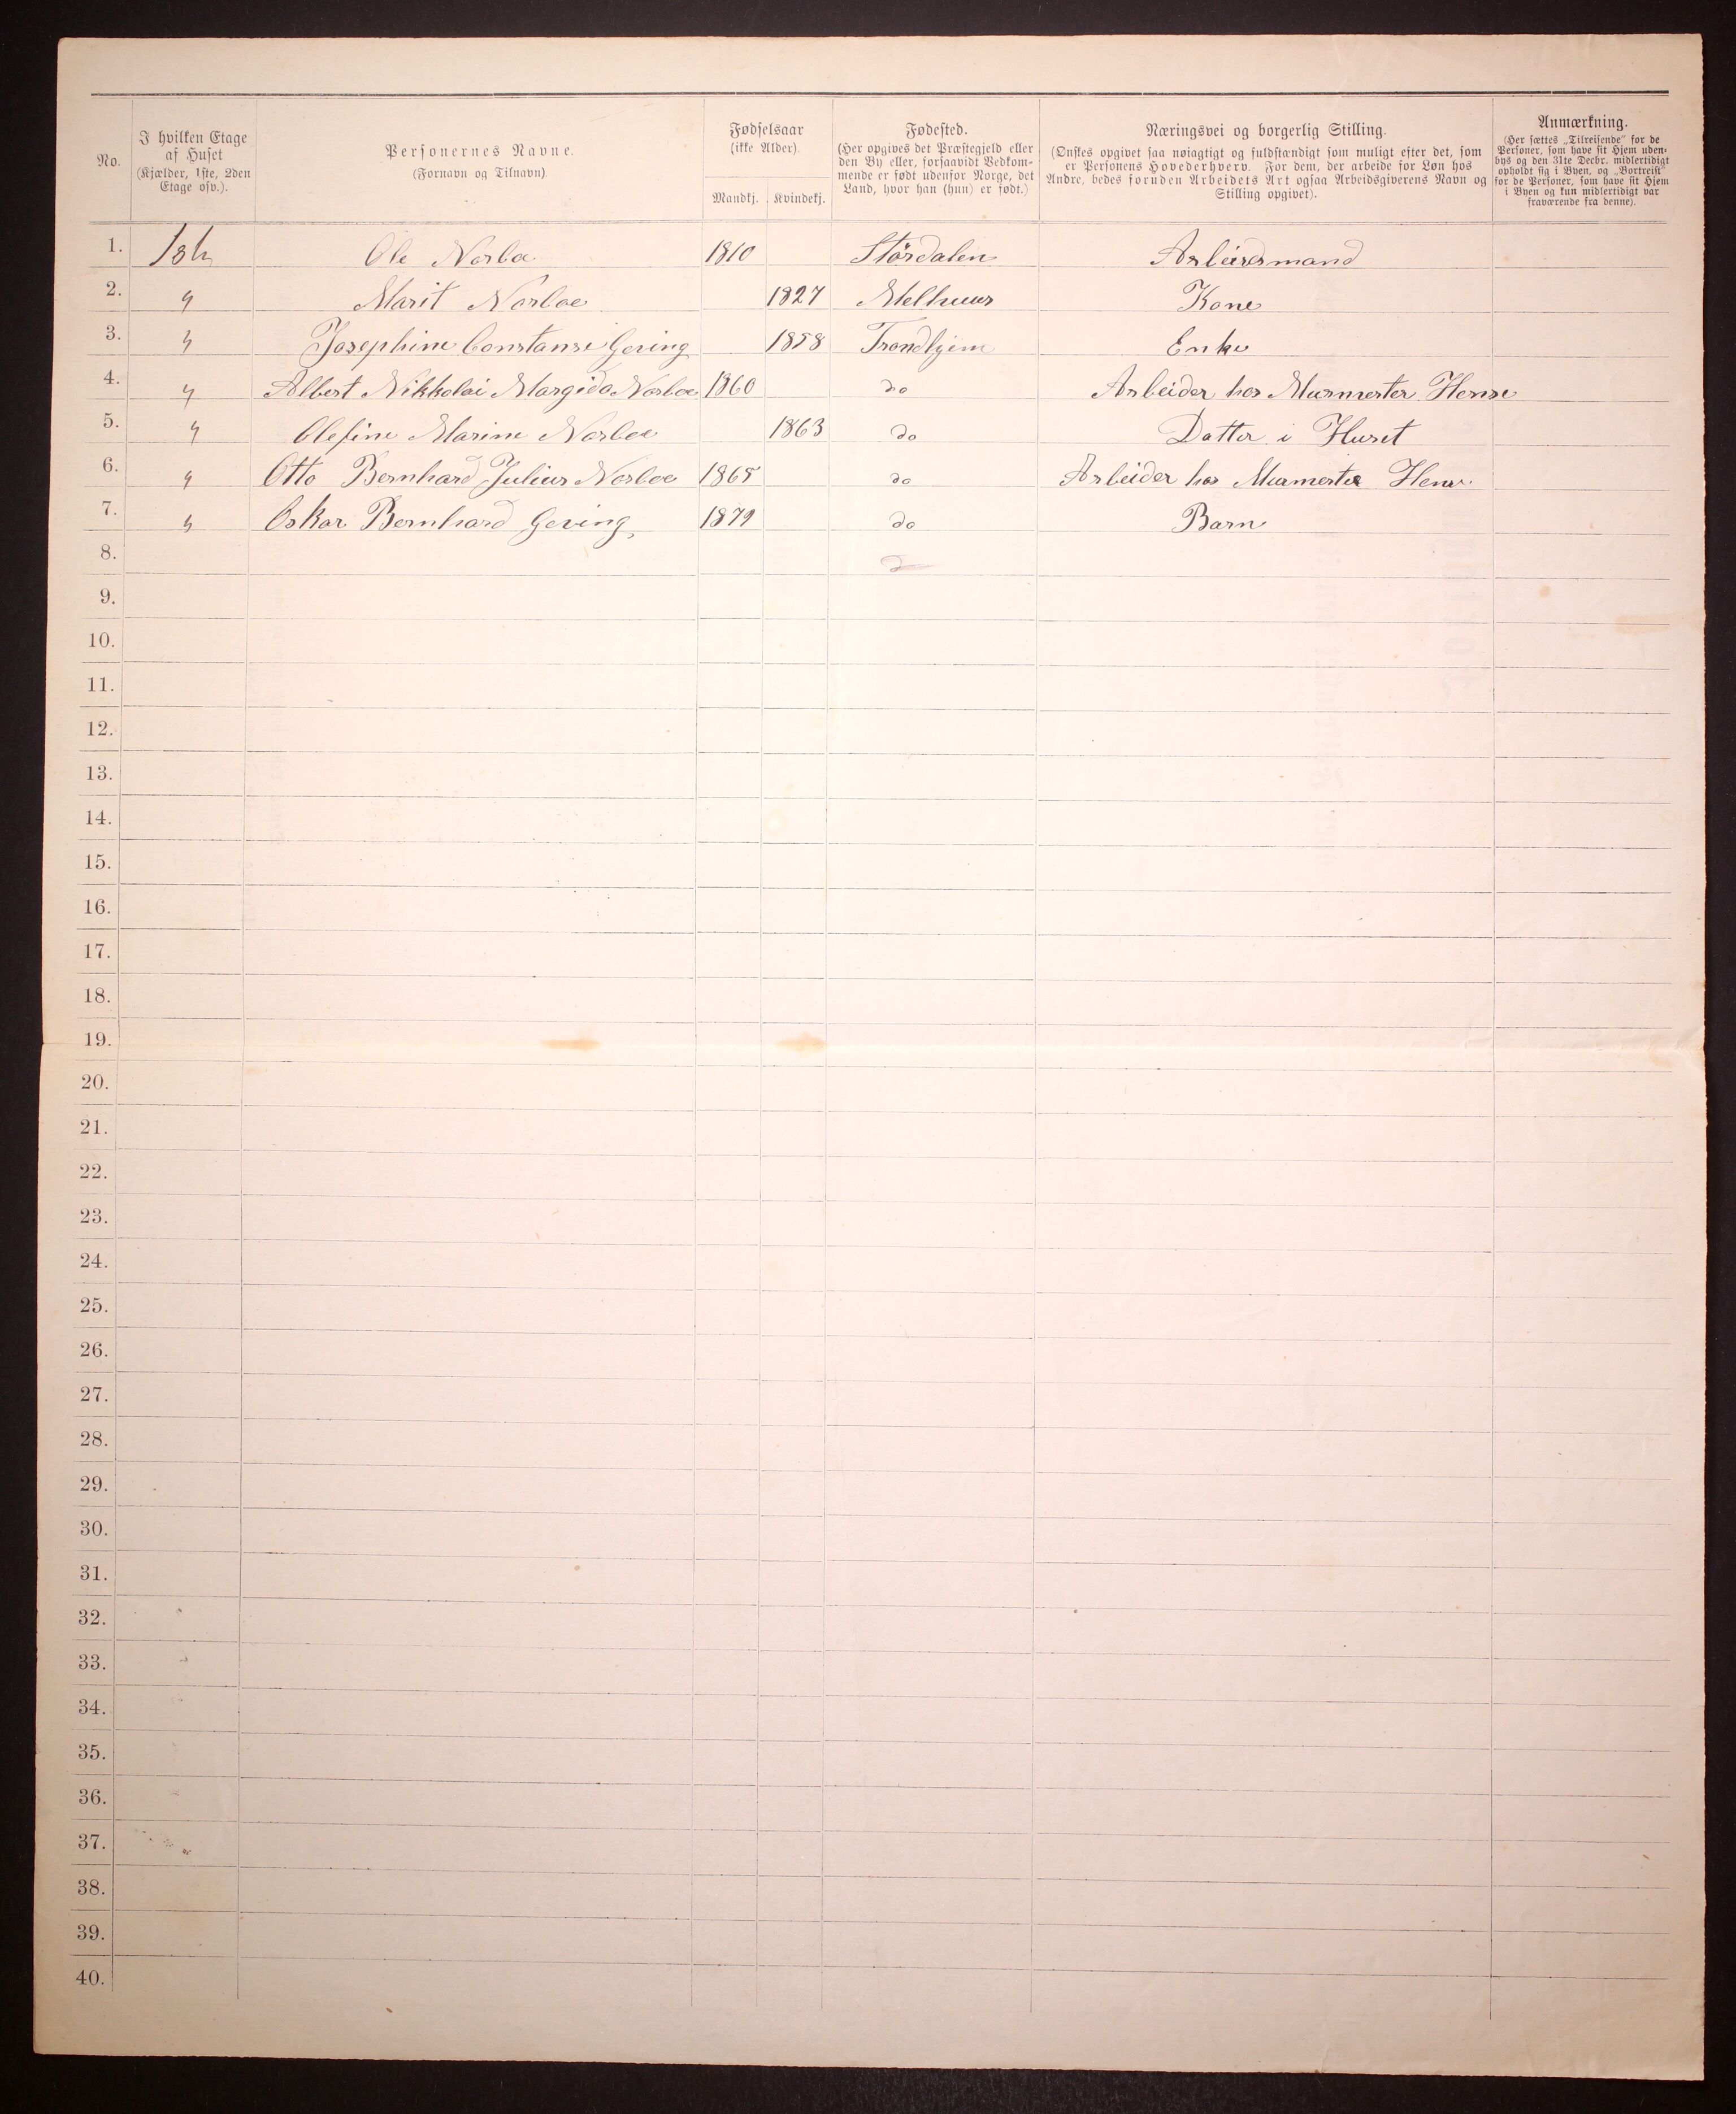 No.
I hvilken Etage
af Huset
(Kjælder, 1ste, 2den
Etage osv.).
Personernes Navne.
(Fornavn og Tilnavn).
Fødselsaar
(ikke Alder).
Mandkj. Kvindekj.
Fødested.
(Her opgives det Præstegjeld eller
den By eller, forsaavidt Vedkom-
mende er født udenfor Norge, det
Land, hvor han (hun) er født.)
Næringsvei og borgerlig Stilling.
(Ønskes opgivet saa nøiagtigt og fuldstændigt som muligt efter det, som
er Personens Hovederhverv. For dem, der arbeide for Løn hos
Andre, bedes foruden Arbeidets Art ogsaa Arbeidsgiverens Navn og
Stilling opgivet).
Anmærkning.
(Her sættes „Tilreisende“ for de
Personer, som have sit Hjem uden-
bys og den 31te Decbr. midlertidigt
opholdt sig i Byen, og „Bortreist“
for de Personer, som have sit Hjem
i Byen og kun midlertidigt var
fraværende fra denne).
1. Ole Norbo 1810 Stördalen Arbeidsmand
2. " Marit Norboe 1827 Melhuus Kone
3. " Josephine Constanse Gering 1858 Trondhjem Enke
4. " Albert Nikkolai Margido Norboe 1860 do Arbeider hos Murmester
5. " Olefine Marine Norboe 1863 do Datter i Huset
6. " Otto Bernhard Julius Norboe 1865 do Arbeider hos Murmester
7. " Oskar Bernhard Gering 1879 do Barn
8.
9.
10.
11.
12.
13.
14.
15.
16.
17.
18.
19.
20.
21.
22.
23.
24.
25.
26.
27.
28.
29.
30.
31.
32.
33.
34.
35.
36.
37.
38.
39.
40.